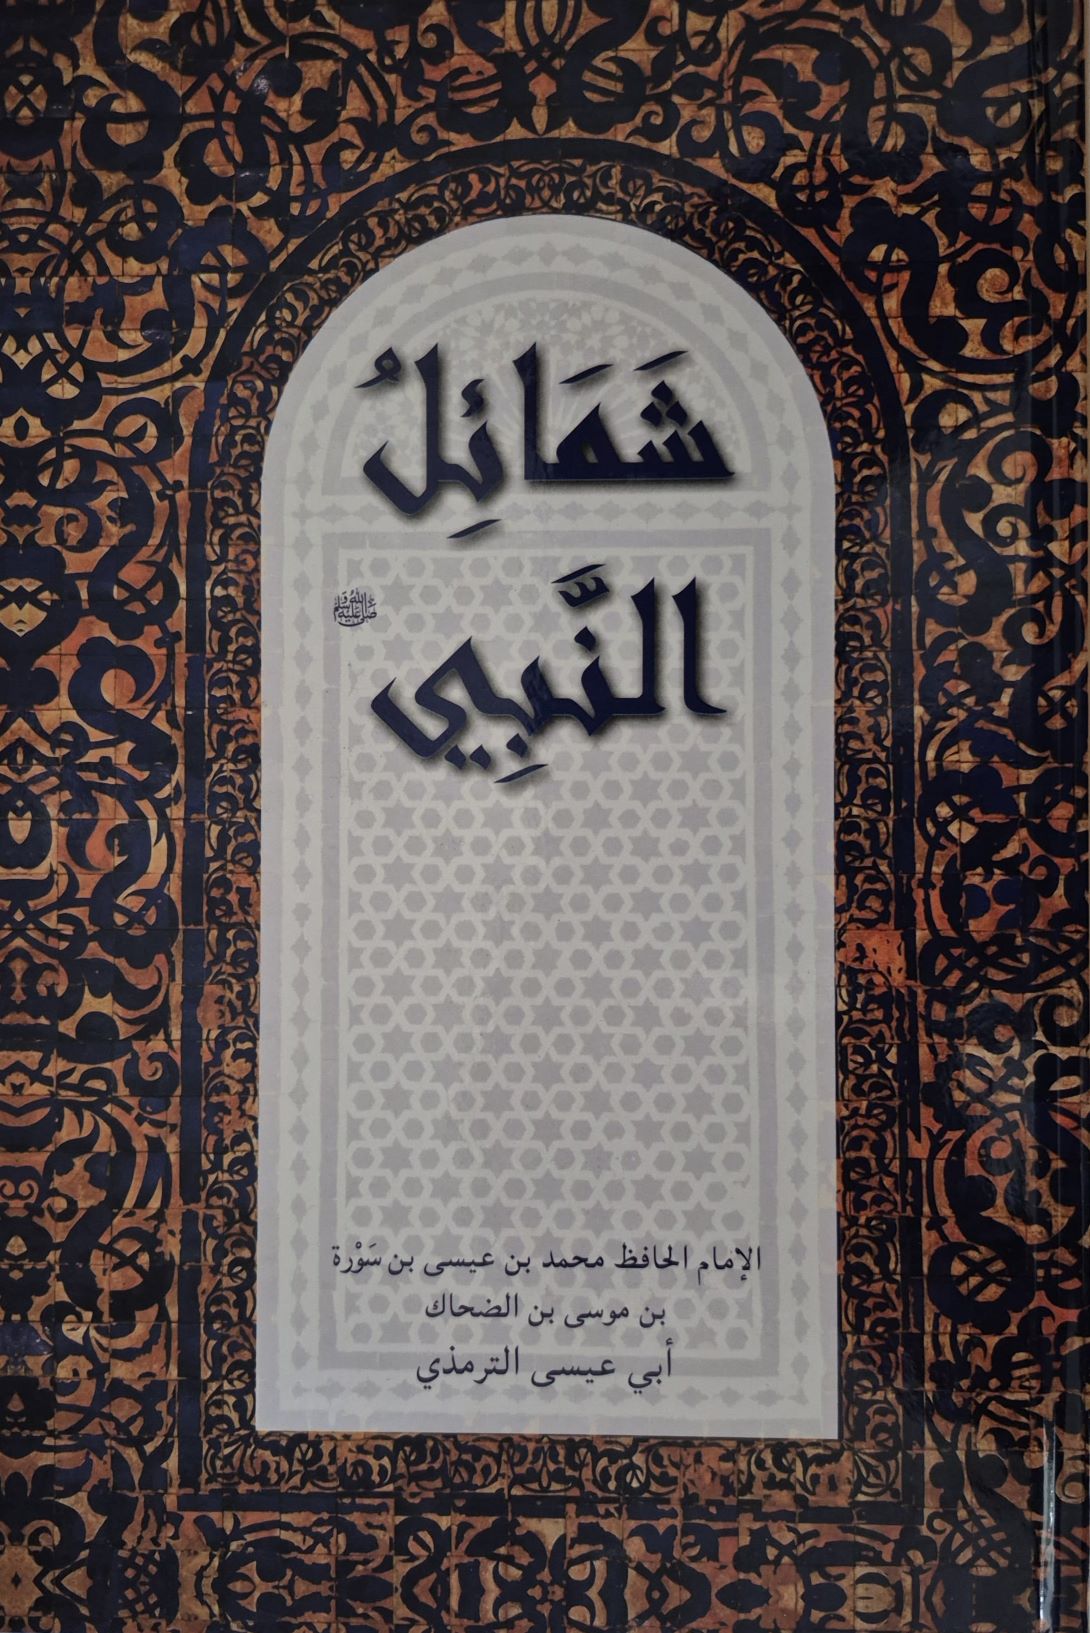 شَمَائِلُ
النَّبِي ﷺ
الإمام الحافظ محمد بن عيسى بن سَوْرة
بن موسى بن الضحاك
أبي عيسى الترمذي